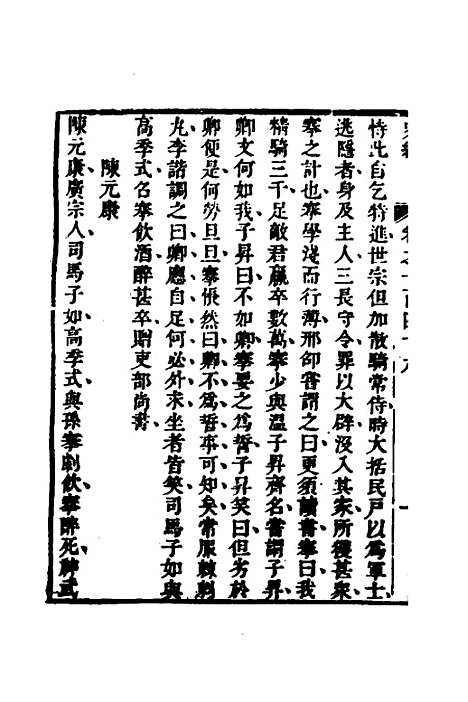 恃此自乞特進世宗但加散騎常侍時大括民戶以爲軍士
逃隱者身及主人三長守令罪以大辟沒入其家所獲甚衆
搴之計也搴學淺而行薄邢卲嘗謂之曰更須讀書搴曰我
精騎三千足敵君羸卒數萬搴少與溫子昇齊名嘗謂子昇
卿文何如我子昇曰不如卿搴要之爲誓子昇笑曰但劣於
卿便是何勞旦旦搴悵然曰卿不爲誓事可知矣常服棘刺
丸李諧調之曰卿應自足何必外求坐者皆笑司馬子如與
高季式名搴飲酒醉甚卒贈吏部尚書
陳元康
陳元康廣宗人司馬子如高季式與孫搴劇飲搴醉死神武